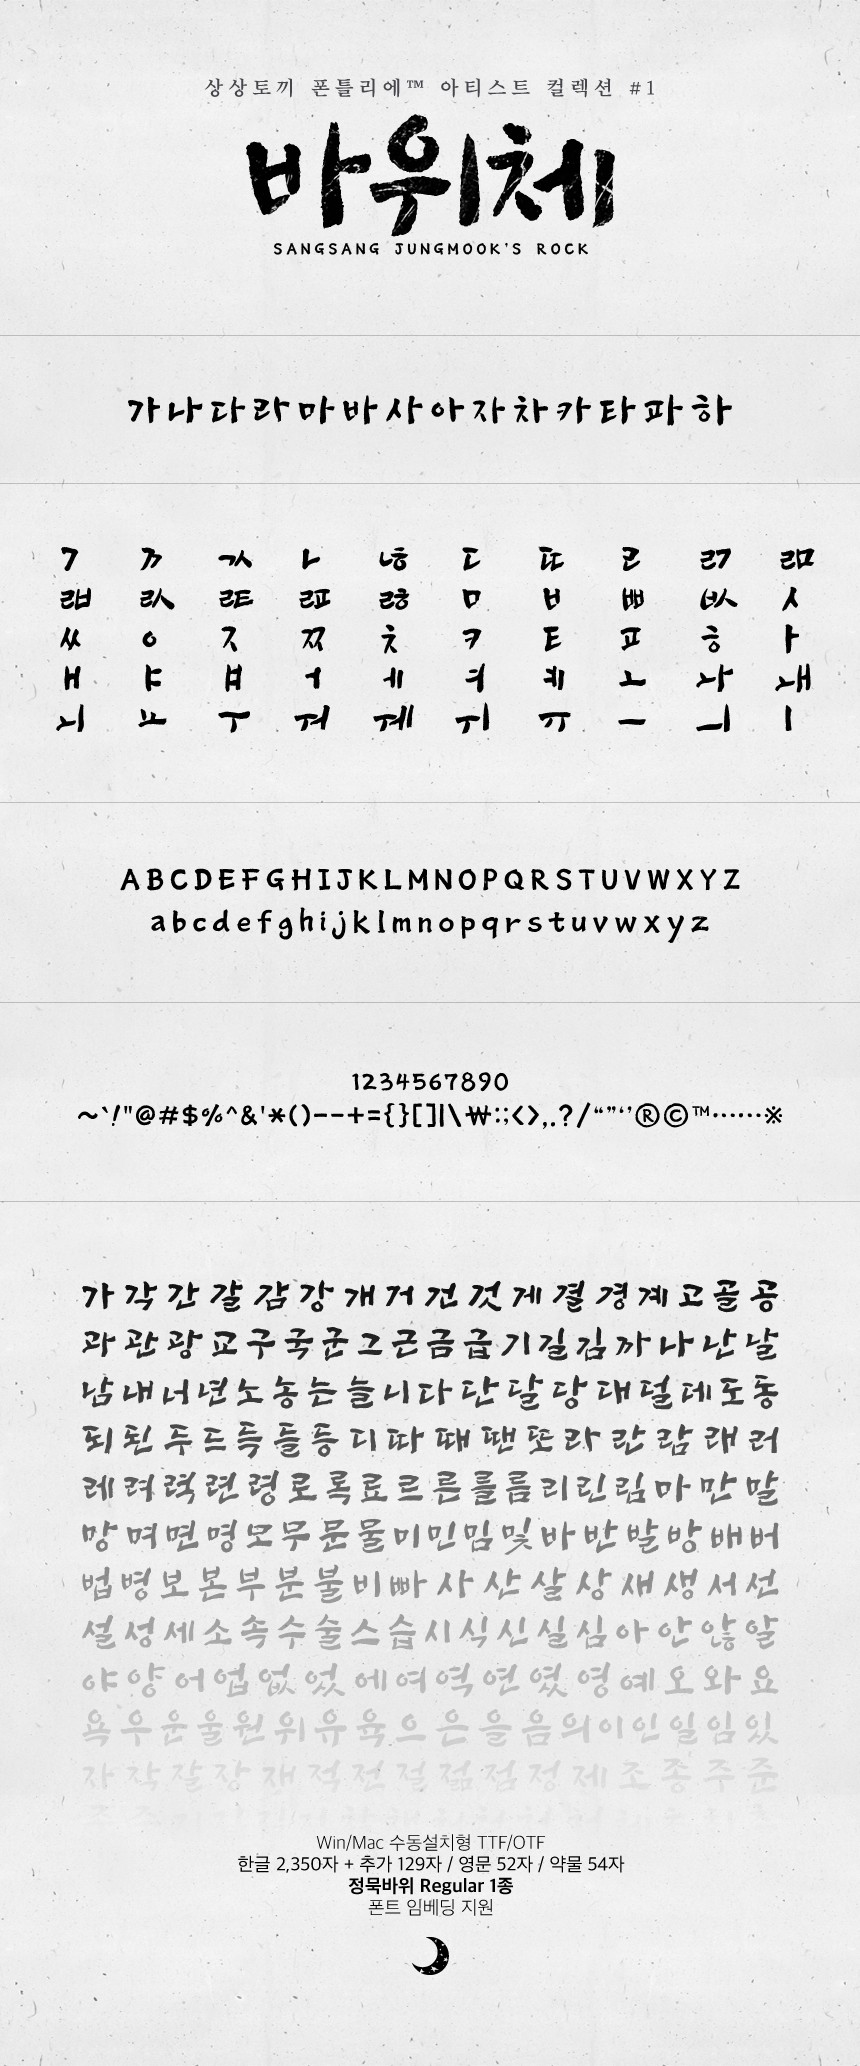 상상토끼 폰틀리에™ 아티스트 컬렉션 #1
바위체
SANGSANG JUNGMOOK'S ROCK
가나다라마바사아자차카타파하
ㄱ ㄲ ㄳ ㄴ ㄶ ㄷ ㄸ ㄹ ㄺ ㄻ
ㄼ ㄽ ㄾ ㄿ ㅀ ㅁ ㅂ ㅃ ㅄ ㅅ
ㅆ ㅇ ㅈ ㅉ ㅊ ㅋ ㅌ ㅍ ㅎ ㅏ
ㅐ ㅑ ㅒ ㅓ ㅔ ㅕ ㅖ ㅗ ㅘ ㅙ
ㅚ ㅛ ㅜ ㅝ ㅞ ㅟ ㅠ ㅡ ㅢ ㅣ
ABCDEFGHIJKLMNOPQRSTUVWXYZ
abcdefghijklmnopqrstuvwxyz
1234567890
~`!"@#$%^&'*()--+={}[]|\₩:;<>,.?/“”‘’®©™……※
가 각 간 갈 감 강 개 거 건 것 게 결 경 계 고 골 공
과 관 광 교 구 국 군 그 근 금 급 기 길 김 까 나 난 날
남 내 너 년 노 농 는 늘 니 다 단 달 당 대 덜 데 도 동
되 된 두 드 득 들 등 디 따 때 땐 또 라 란 람 래 러
레 려 력 련 령 로 록 료 르 른 를 름 리 린 림 마 만 말
망 며 면 명 모 무 문 물 미 민 밈 및 바 반 발 방 배 버
법 병 보 본 부 분 불 비 빠 사 산 살 상 새 생 서 선
설 성 세 소 속 수 술 스 습 시 식 신 실 심 아 안 않 알
야 양 어 업 없 었 에 여 역 연 였 영 예 오 와 요
욕 우 운 울 원 위 유 육 으 은 을 음 의 이 인 일 임 있
자 작 잘 장 재 적 전 절 젊 점 정 제 조 종 주 준
Win/Mac 수동설치형 TTF/OTF
한글 2,350자 + 추가 129자 / 영문 52자 / 약물 54자
정묵바위 Regular 1종
폰트 임베딩 지원